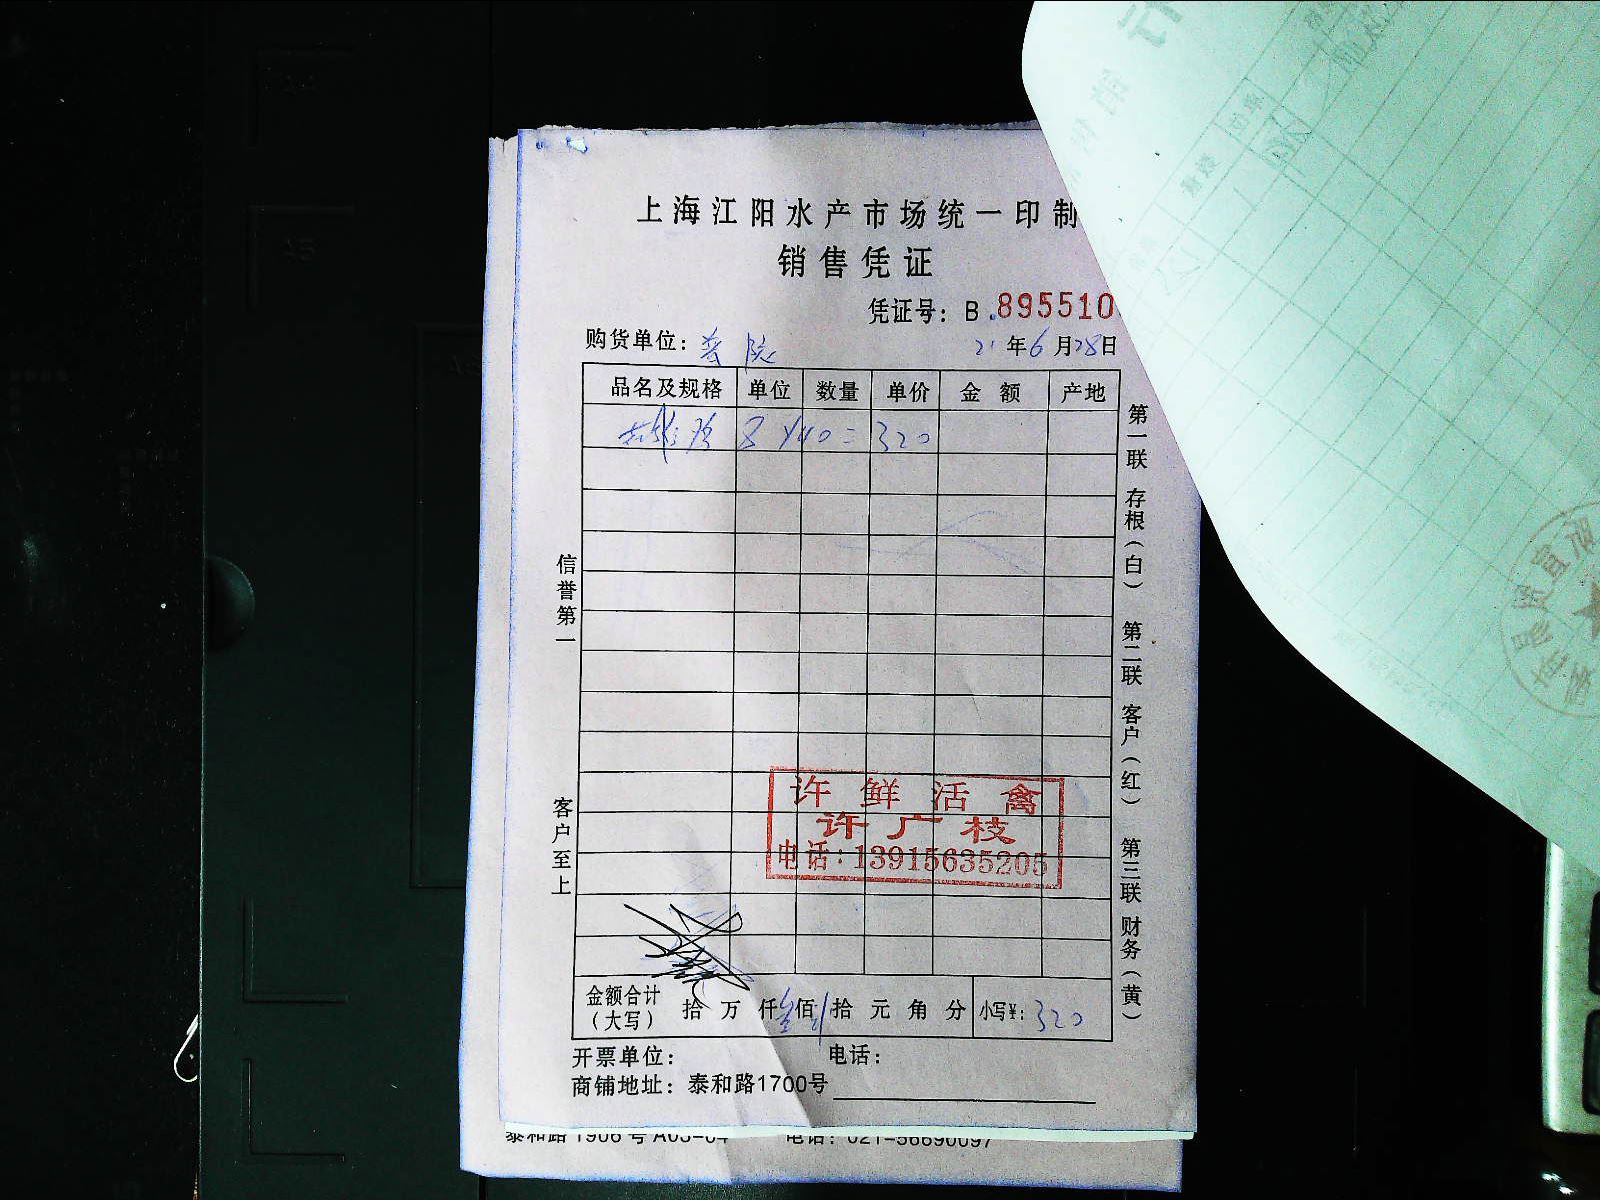 上海江阳水产市场统一印制
销售凭证
凭证号：B.895510
购货单位： 21年6月28日
品名及规格 单位 数量 单价 金额 产地
8 X40=320
信誉第一
客户至上
第一联 存根（白） 第二联 客户（红） 第三联 财务（黄）
许鲜活禽
许广枝
电话：13915635205
金额合计（大写） 拾 万 仟 佰 拾 元 角 分 小写¥：320
开票单位： 电话：
商铺地址：泰和路1700号
泰和路1906号A03-04 电话：021-56690097